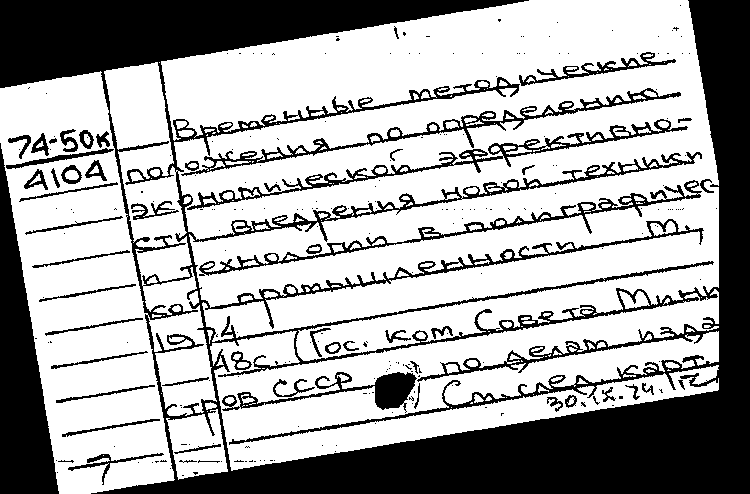 74-50к
4104
Временные методические
положения по определению
экономической эффективно-
сти внедрения новой техники
и технологии в полиграфичес-
кой промышленности. М.,
1974
48с. (Гос. ком. Совета Мини
стров СССР по делам изда
См. след. карт.
30.IX.74.
7